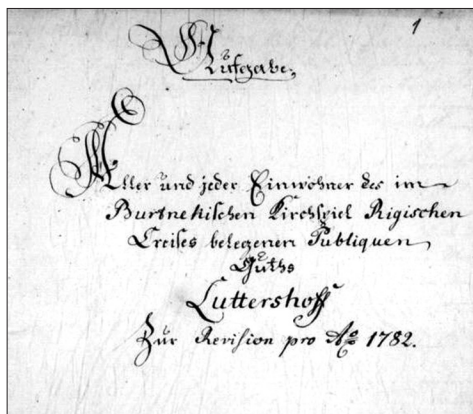 1
Aufgabe,
Aller und jeder Einwohner des im
Burtnekischen Kirchspiel Rigischen
Creises belegenen Publiquen
Guths
Luttershoff
Zur Revision pro Ao 1782.